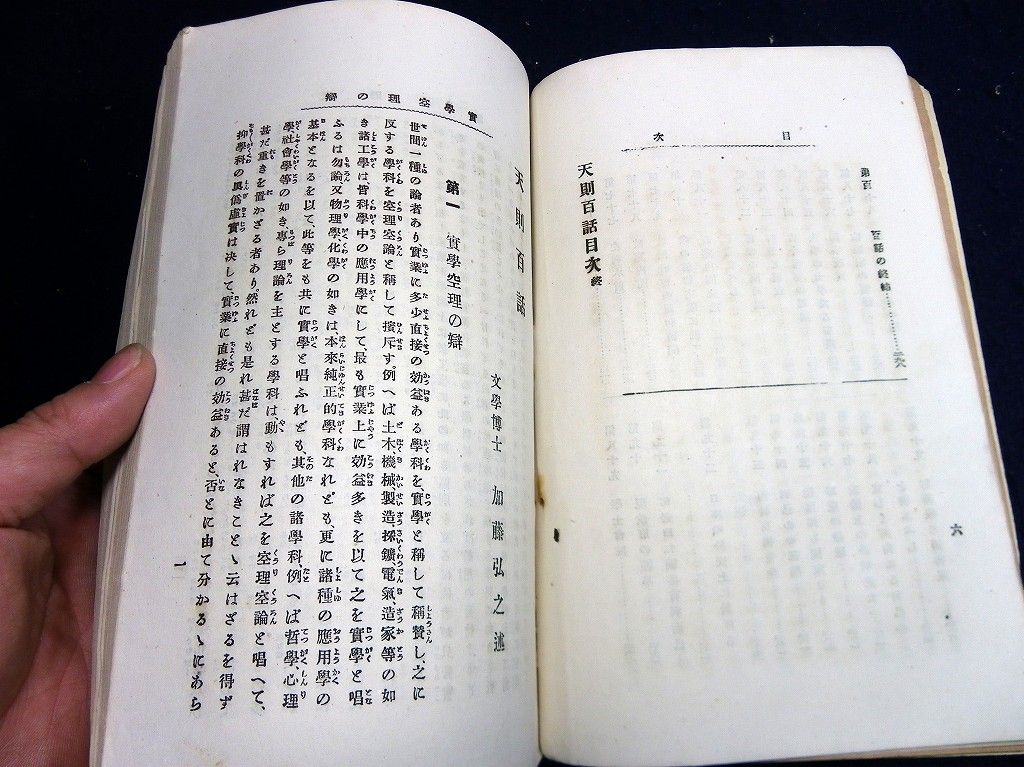 目次
第百
百話の終結………………二九八
天則百話目次終
六
實學空理の辯
天則百話
文學博士 加藤弘之述
第一 實學空理の辯
世間一種の論者あり、實業に多少直接の効益ある學科を、實學と稱して稱賛し、之に
反する學科を空理空論と稱して擯斥す。例へば土木、機械製造、採鑛、電氣、造家等の如
き諸工學は皆科學中の應用學にして、最も實業上に効益多きを以て之を實學と唱
ふるは勿論又物理學化學の如きは、本來純正的學科なれども、更に諸種の應用學の
基本となるを以て、此等をも共に實學と唱ふれども、其他の諸學科、例へば哲學、心理
學社會學等の如き、專ら理論を主とする學科は、動もすれば之を空理空論と唱へて、
甚だ重きを置かざる者あり。然れども是れ甚だ謂はれなきことゝ云はざるを得ず
抑學科の眞僞虛實は決して、實業に直接の効益あると、否とに由て分かるゝにあら
一